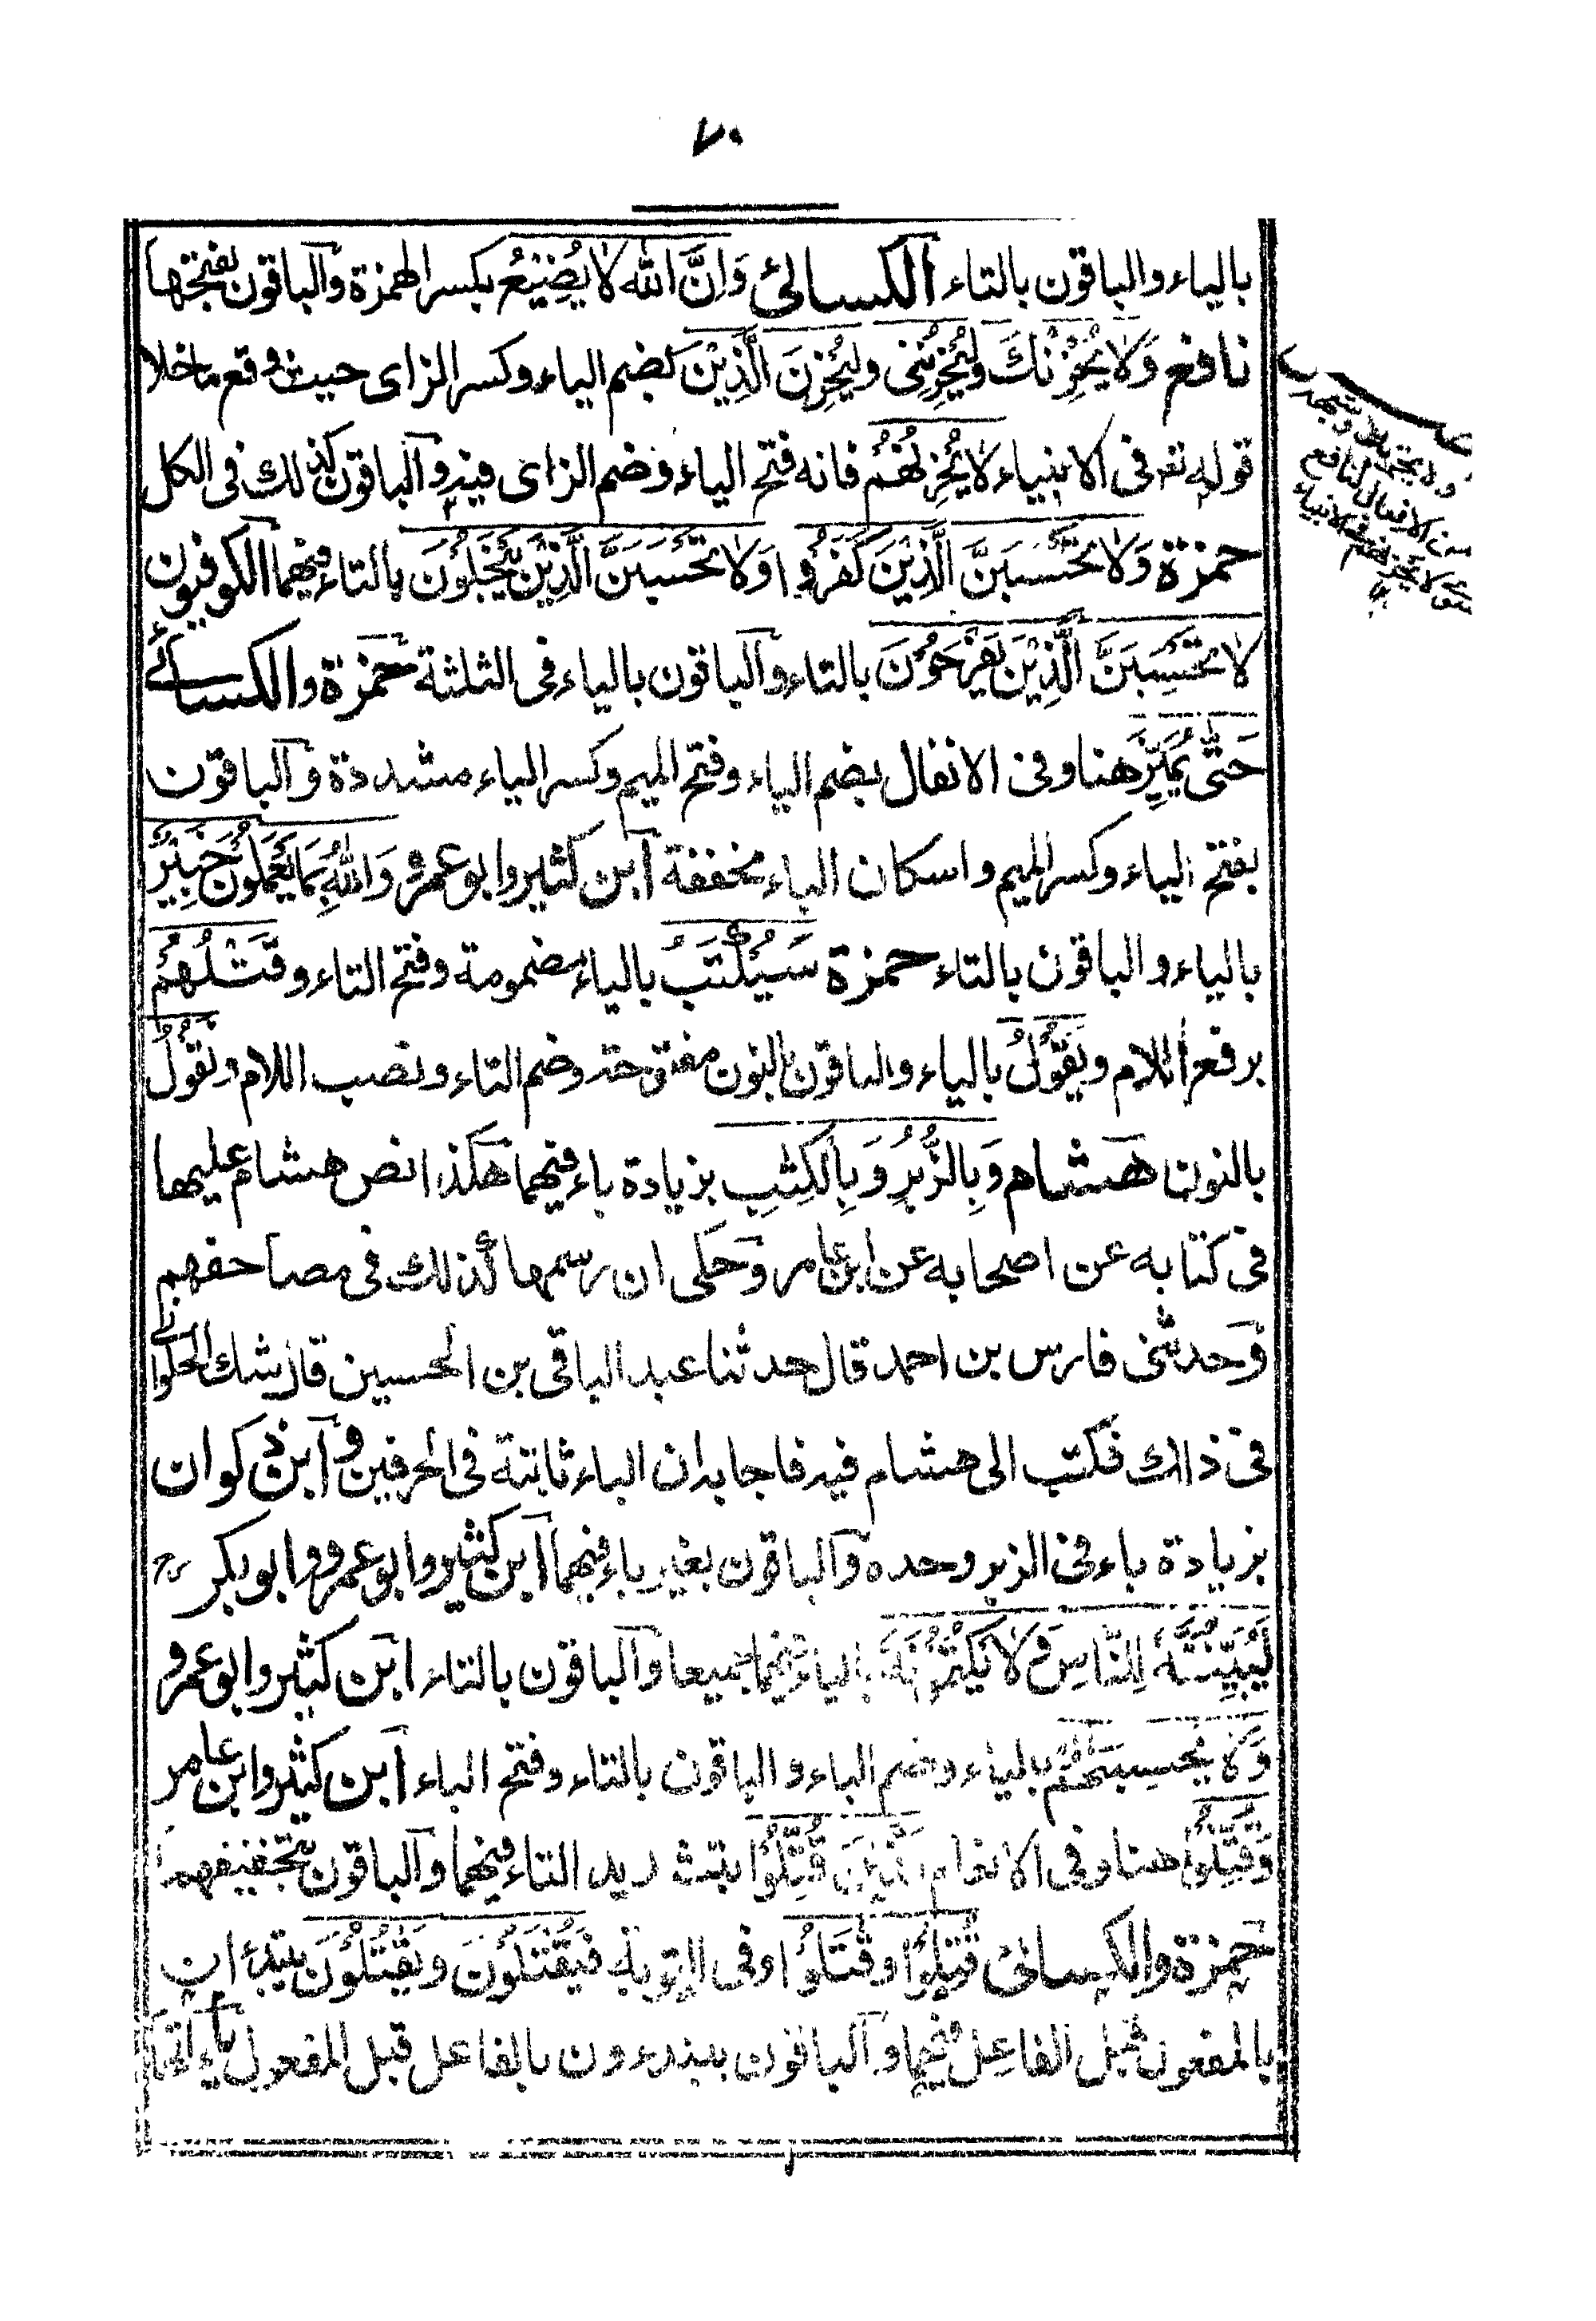 ٧٠
بالياء والباقون بالتاء الكسائى وَاِنَّ الله لا يُضِيْعُ بكسر الهمزة والباقون بفتحها
نافع وَلا يُحْزِنْكَ وليُحْزِنُنِى وليُحْزِنَ الَّذِيْنَ بضم الياء وكسر الزاى حيث وقع ما خلا
قوله تعر فى الانبياء لا يُحْزِنُهُمُ فانه فتح الياء وضم الزاى فيه والباقون كذلك فى الكل
حمزة وَلا تَحْسَبَنَّ الَّذِيْنَ كَفَرُوا وَلا تَحْسَبَنَّ الَّذِيْنَ يَبْخَلُوْنَ بالتاء فيهما الكوفيون
لا تَحْسَبَنَّ الَّذِيْنَ يَفْرَحُوْنَ بالتاء والباقون بالياء فى الثلثة حمزة والكسائے
حَتّٰى يُمَيِّزَ هنا وفى الانفال بضم الياء وفتح الميم وكسر الياء مشددة والباقون
بفتح الياء وكسر الميم واسكان الياء مخففة ابن كثير وابو عمرو وَاللهُ بِمَا يَعْمَلُوْنَ خَبِيْرٌ
بالياء والباقون بالتاء حمزة سَيُكْتَبُ بالياء مضمومة وفتح التاء وقَتْلُهُمُ
برفع اللام ويَقُوْلُ بالياء والباقون بالنون مفتوحة وضم التاء ونصب اللام ونَقُوْلُ
بالنون هشام وَبِالزُّبُرِ وَبِالْكِتٰبِ بزيادة باء فيهما هكذا نص هشام عليهما
فى كتابه عن اصحابه عن ابن عامر وحكى ان رسمها كذلك فى مصاحفهم
وحدثنى فارس بن احمد قال حدثنا عبد الباقى بن الحسين قال شك الحلوانے
فى ذالك فكتب الى هشام فيه فاجابه ان الباء ثابتة فى الحرفين وابن ذكوان
بزيادة باء فى الزبر وحده والباقون بغير باء فيهما ابن كثير وابو عمرو وابو بكر
لَيُبَيِّنُنَّهٗ لِلنَّاسِ وَلا يَكْتُمُوْنَهٗ بالياء فيهما جميعا والباقون بالتاء ابن كثير وابو عمرو
وَلا يَحْسِبُنَّهُمْ بالياء وضم الباء والباقون بالتاء وفتح الباء ابن كثير وابن عامر
وَقُتِّلُوْا هنا وفى الانعام الَّذِيْنَ قُتِّلُوْا بتشديد التاء فيهما والباقون بتخفيفهما
حمزة والكسائى قُتِلُوْا وقٰتَلُوْا وفى التوبة فَيُقْتَلُوْنَ ويَقْتُلُوْنَ يبتدءان
بالمفعول قبل الفاعل فيهما والباقون يبتدءون بالفاعل قبل المفعول
من الافعال لنافع